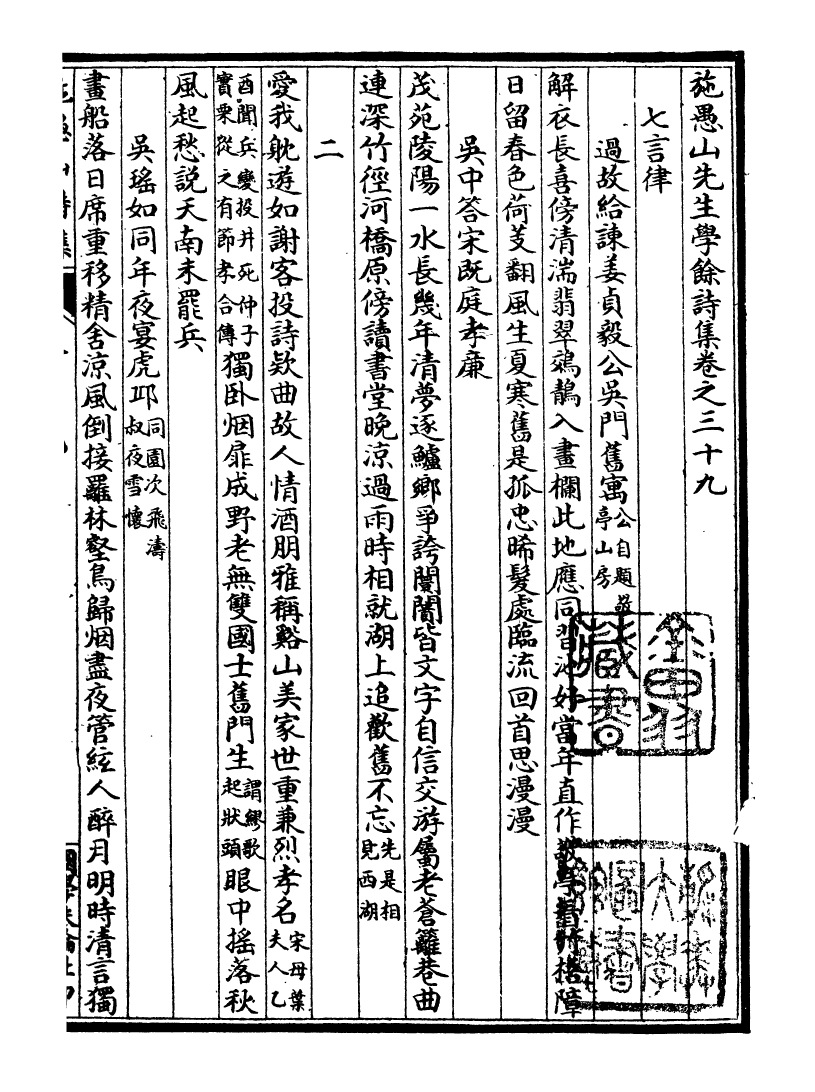 施愚山先生學餘詩集卷之三十九
七言律
過故給諫姜貞毅公吳門舊寓公自題敬亭山房
解衣長喜傍清湍翡翠鵁鶄入畫欄此地應同習池好當年直作障
日留春色荷芰翻風生夏寒舊是孤忠晞髮處臨流回首思漫漫
吳中答宋既庭孝廉
茂苑陵陽一水長幾年清夢逐鱸鄉爭誇闤闠皆文字自信交游屬老蒼籬巷曲
連深竹徑河橋原傍讀書堂晚涼過雨時相就湖上追歡舊不忘先是相見西湖
二
愛我躭遊如謝客投詩欵曲故人情酒朋雅稱谿山美家世重兼烈孝名宋母葉夫人乙
酉聞兵變投井死仲子實栗從之有節孝合傳獨卧烟扉成野老無雙國士舊門生謂繆歌起狀頭眼中搖落秋
風起愁説天南未罷兵
吳瑤如同年夜宴虎邱同園次飛濤叔夜雪懷
畫船落日席重移精舍涼風倒接羅林壑鳥歸烟盡夜管絃人醉月明時清言獨